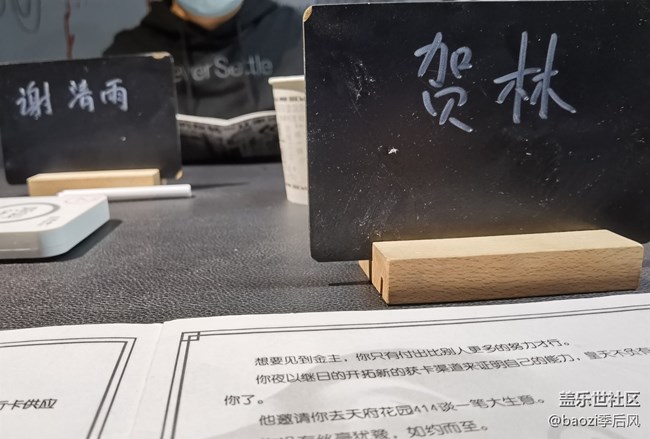 谢浩雨
贺林
ever Settle
想要见到金主，你只有付出比别人更多的努力才行。
你夜以继日的开拓新的获卡渠道来证明自己的能力，皇天不负有
你了。
他邀请你去天府花园414谈一笔大生意。
你没有丝毫犹豫，如约而至。
行卡供应
盖乐世社区
@baozi季后风